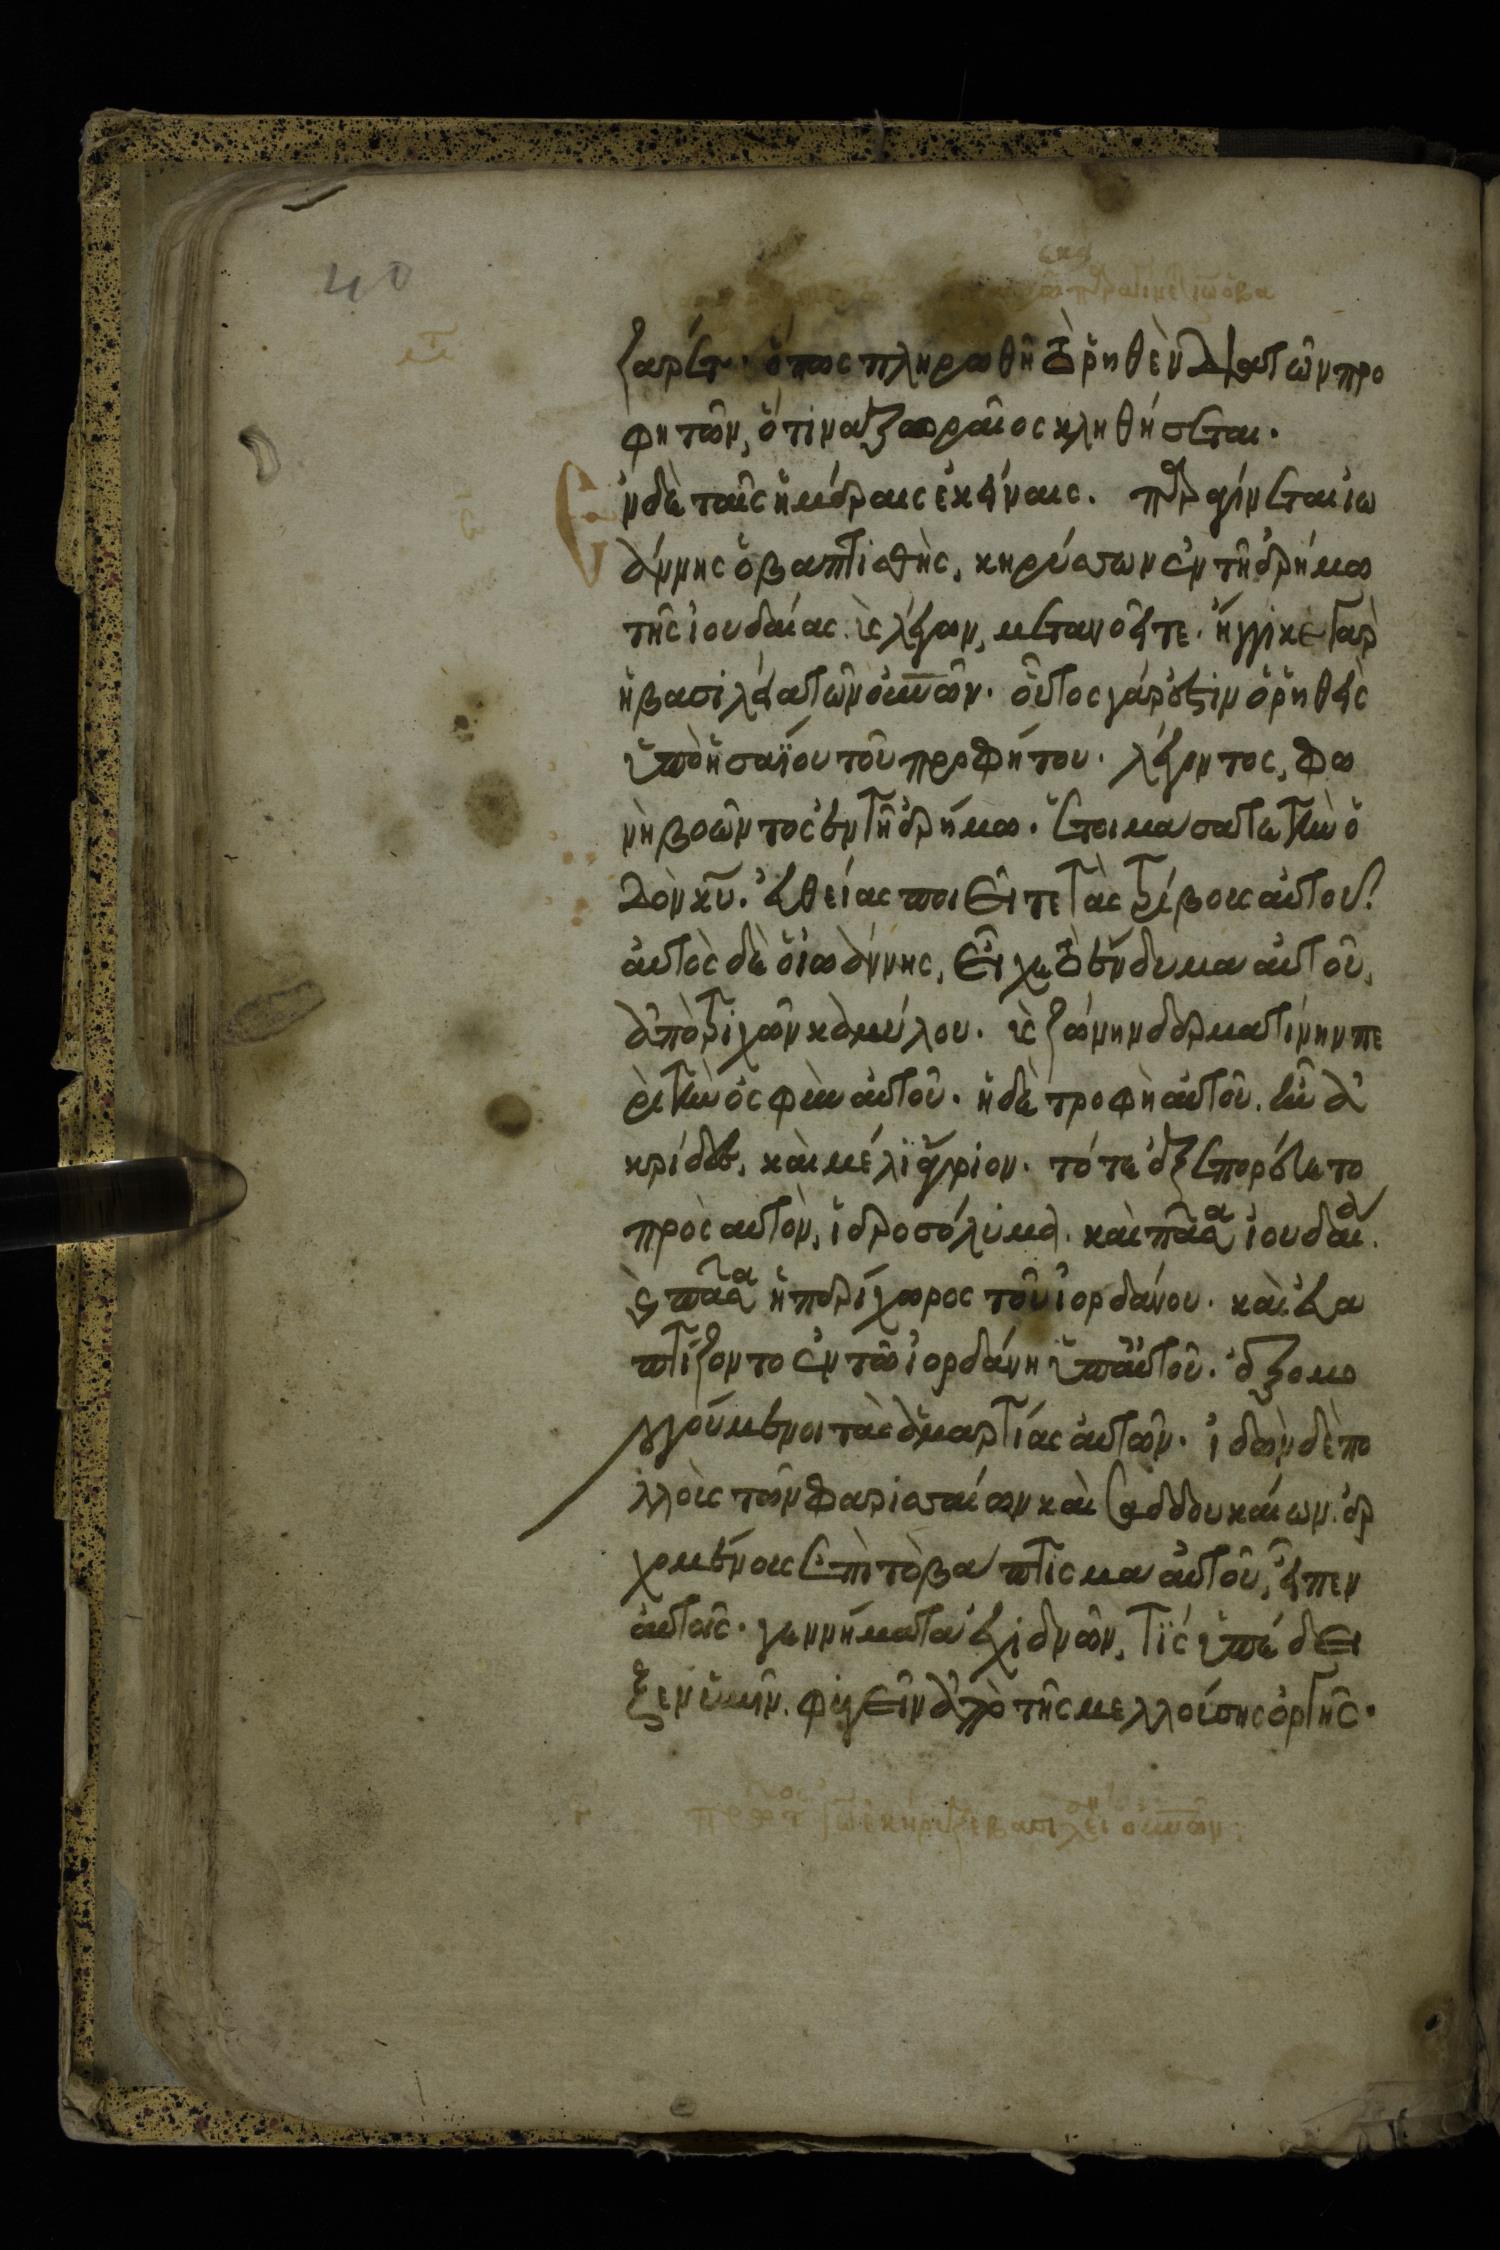 40
ζαρέτ· ὅπως πληρωθῆ τὸ ῥηθὲν διὰ τῶν προ
φητῶν, ὅτι ναζωραῖος κληθήσεται·
Ἐν δὲ ταῖς ἡμέραις ἐκείναις. παραγίνεται ἰω
άννης ὁ βαπτιστὴς, κηρύσσων ἐν τῆ ἐρήμω
τῆς ἰουδαίας. κὶ λέγων, μετανοεῖτε· ἤγγικε γὰρ
ἡ βασιλεία τῶν οὐνῶν· οὗτος γάρ ἐστιν ὁ ῥηθεὶς
ὑπὸ ἡσαΐου τοῦ προφήτου· λέγοντος, φω
νὴ βοῶντος ἐν τῆ ἐρήμω· ἑτοιμάσατε τὴν ὁ
δὸν κυ· εὐθείας ποιεῖτε τὰς τρίβους αὐτοῦ
αὐτὸς δὲ ὁ ἰωάννης, εἶχε τὸ ἔνδυμα αὐτοῦ,
ἀπὸ τριχῶν καμήλου· κὶ ζώνην δερματίνην πε
ρὶ τὴν ὀσφὺν αὐτοῦ· ἡ δὲ τροφὴ αὐτοῦ. ἦν ἀ
κρίδες, καὶ μέλι ἄγριον· τότε ἐξεπορεύετο
πρὸς αὐτὸν, ἱεροσόλυμα. καὶ πᾶσα ἡ ἰουδαία.
κὶ πᾶσα ἡ περίχωρος τοῦ ἰορδάνου· καὶ ἐβα
πτίζοντο ἐν τῶ ἰορδάνη ὑπ' αὐτοῦ· ἐξομο
λογούμενοι τὰς ἁμαρτίας αὐτῶν· ἰδὼν δὲ πο
λλοὺς τῶν φαρισαίων καὶ σαδδουκαίων. ἐρ
χομένους ἐπὶ τὸ βάπτισμα αὐτοῦ, εἶπεν
αὐτοῖς· γεννήματα ἐχιδνῶν, τίς ὑπέδει
ξεν ὑμῖν. φυγεῖν ἀπὸ τῆς μελλούσης ὀργῆς·